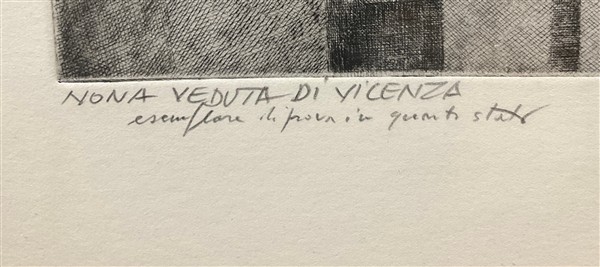 NONA VEDUTA DI VICENZA
esemplare di prova in quarto stato